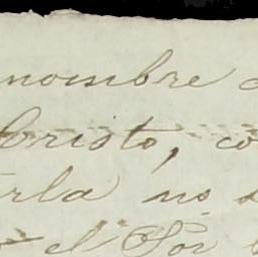 nombre
Cristo, co
arla no
el Por